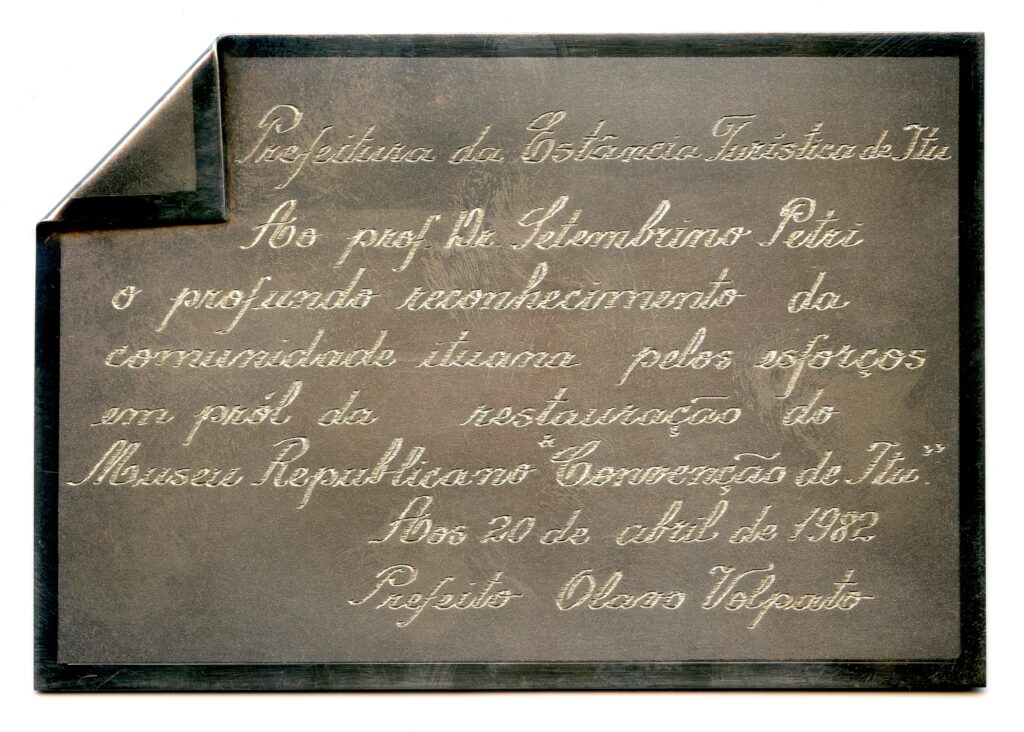 Prefeitura da Estância Turística de Itu
Ao prof. Dr. Setembrino Petri
o profundo reconhecimento da
comunidade ituana pelos esforços
em pról da restauração do
Museu Republicano "Convenção de Itu".
Aos 20 de abril de 1982
Prefeito Olavo Volpato